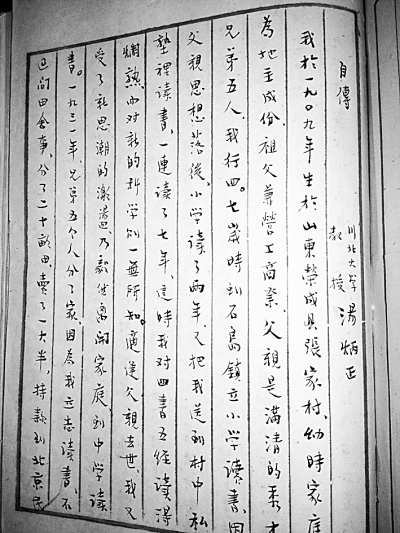 自傳
川北大学
教授 湯炳正
我於一九0九年生於山東榮成县張家村。幼時家庭
為地主成份。祖父兼營工商業、父親是滿清的秀才
兄弟五人、我行四。七歲時到石島鎮立小学讀書、因
父親思想落後、小学讀了兩年又把我送到村中私
塾裡读書、一連读了七年、這時我对四書五经读得
爛熟、而对新的科学則一無所知。適逢父親去世、我又
受了新思潮的激盪、乃毅然离開家庭到中学读
書。一九三一年兄弟五个人分了家、因為我立志读書、不
過問田舍事、分了二十畝田、賣了一大半、持款到北京民